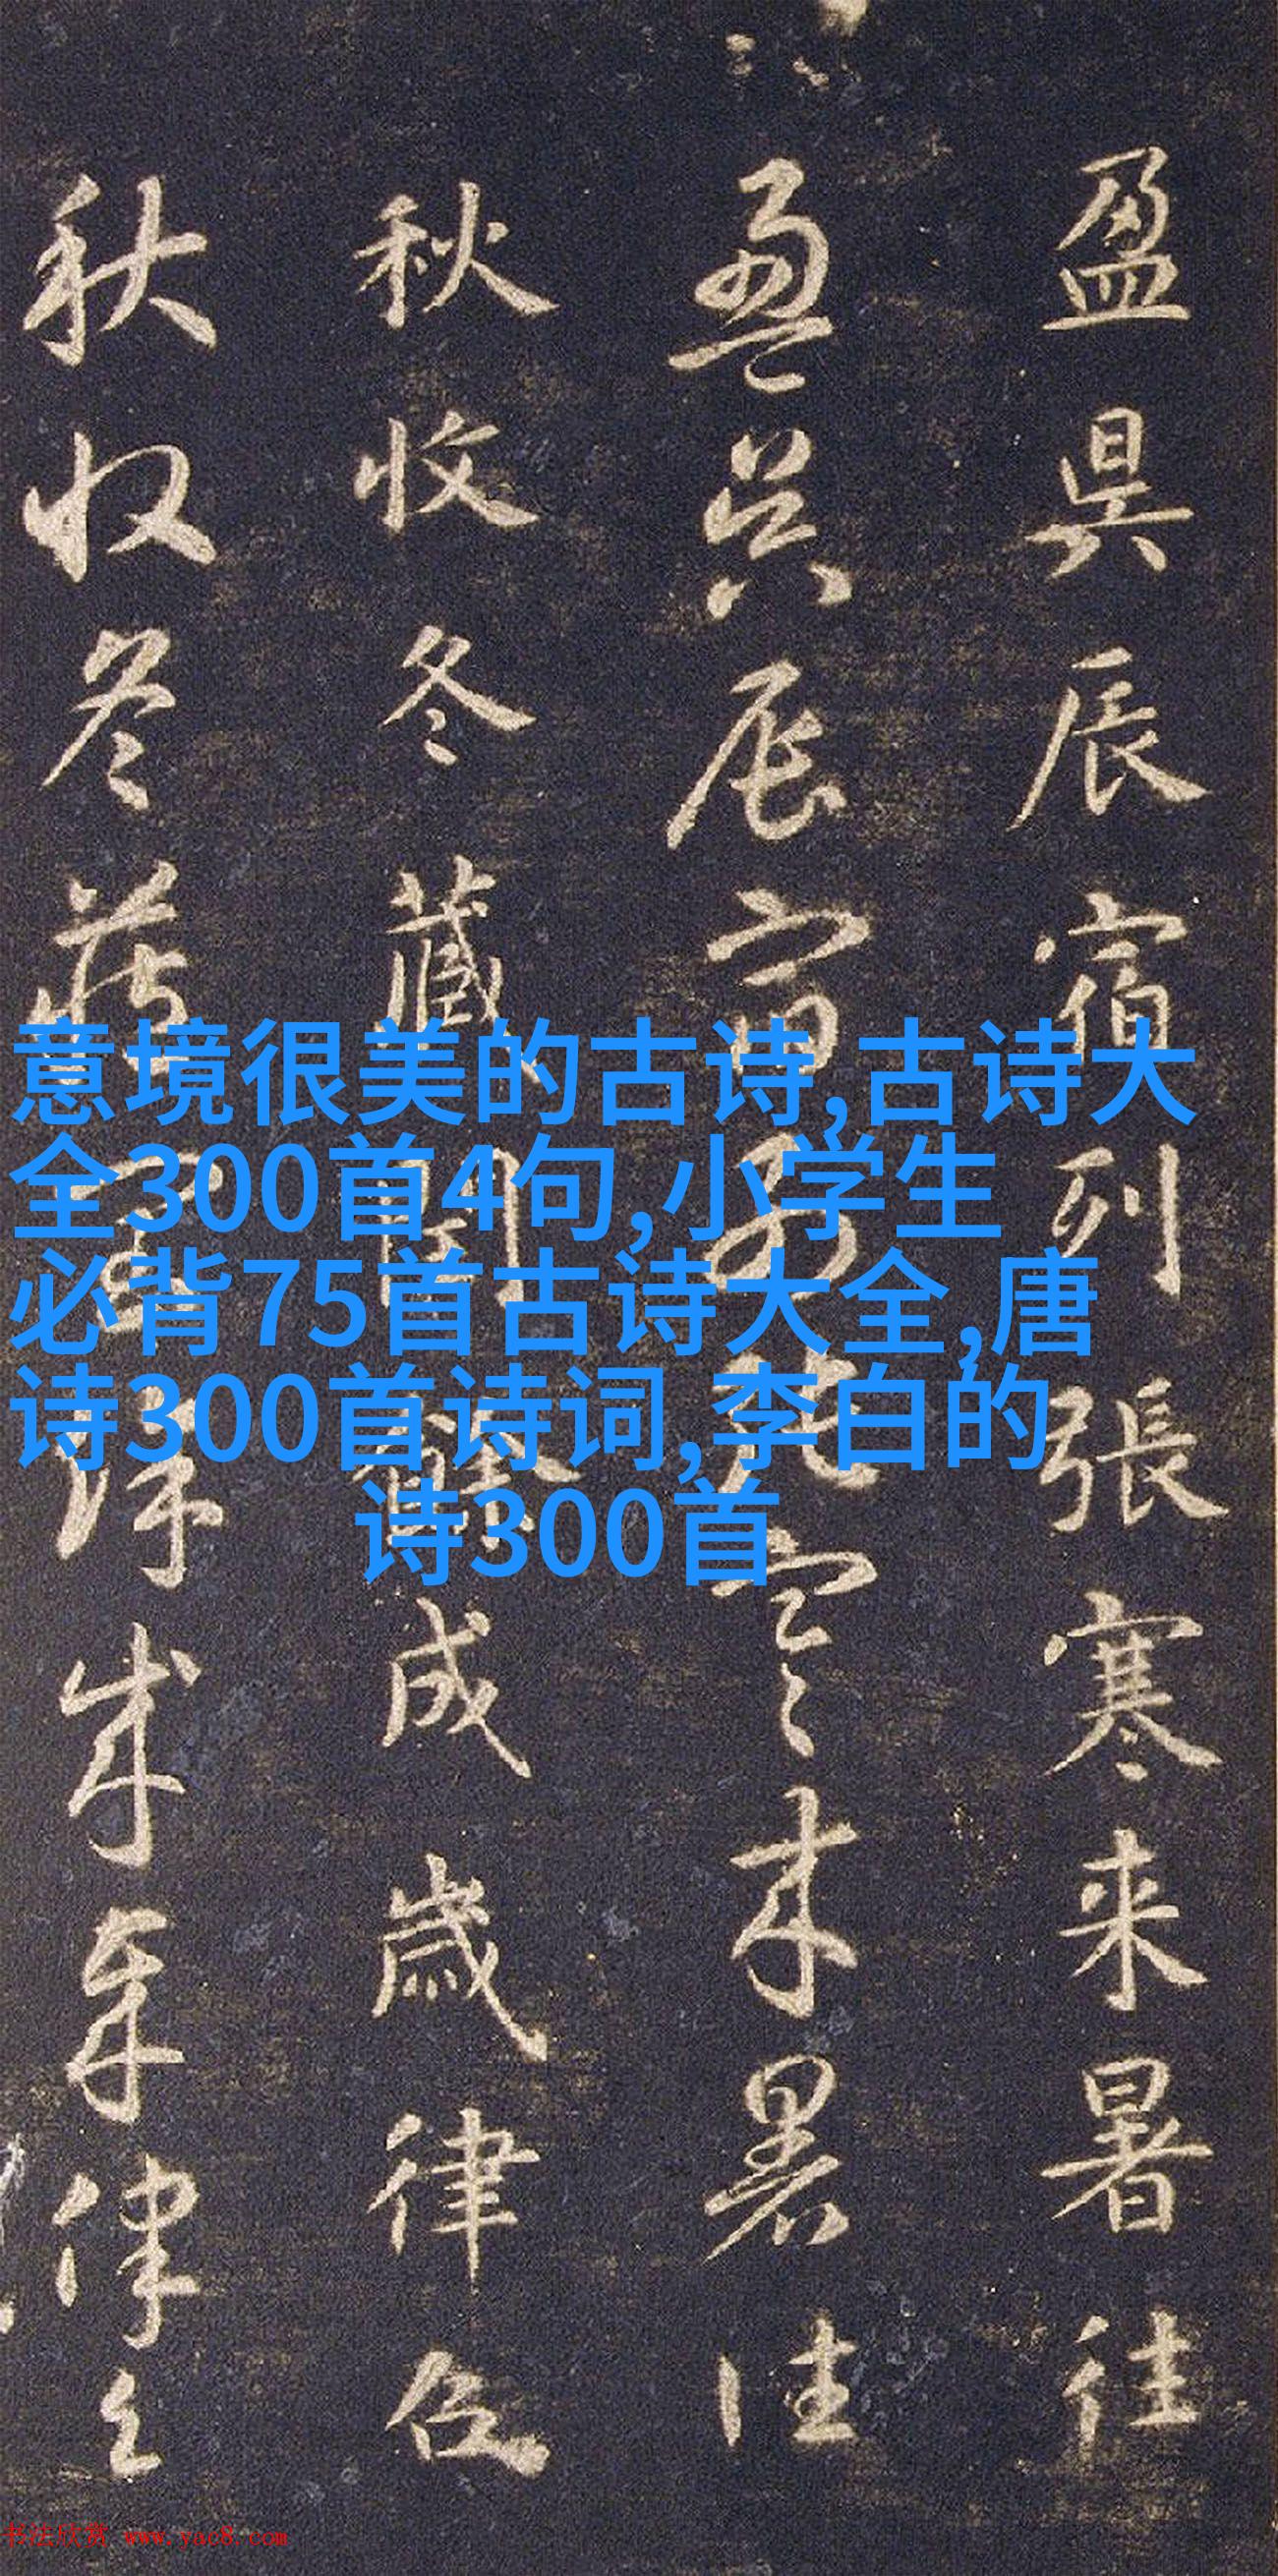 盈昃辰宿列張寒来暑往
盈昃辰宿列張寒来暑往
秋收冬藏閏餘成歲律
秋收冬藏閏餘成歲律
意境很美的古诗,古诗大
全300首4句,小学生
必背75首古诗大全,唐
诗300首诗词,李白的
诗300首
书法欣赏 www.yac8.com